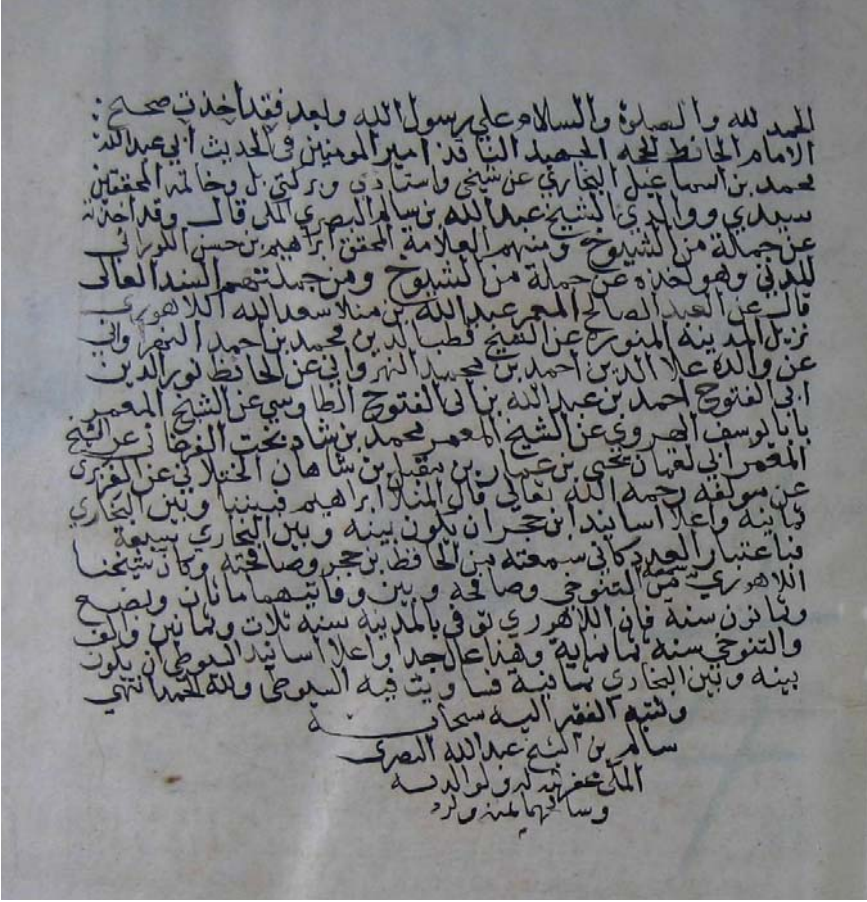 الحمد لله والصلوة والسلام علي رسول الله وبعد فقد اخذت صحيح
الامام الحافظ الحجه الجهبد الناقد امير المومنين في الحديث ابي عبدالله
محمد بن اسماعيل البخاري عن شيخي واستادي وبركتي بل وخاتمة المحققين
سيدي ووالدي الشيخ عبدالله بن سالم البصري المكي قال وقد اخذته
عن جملة من الشيوخ ومنهم العلامة المحقق ابراهيم بن حسن الكوراني
المدني وهو اخذه عن جملة من الشيوخ ومن جملتهم السند العالي
قال عن العبد الصالح المعمر عبدالله بن منلا سعدالله اللاهوري
نزيل المدينه المنوره عن الشيخ قطب الدين محمد بن احمد النهرواني
عن والده علا الدين احمد بن محمد النهرواني عن الحافظ نور الدين
ابي الفتوح احمد بن عبدالله بن ابي الفتوح الطاوسي عن الشيخ المعمر
بابا يوسف الهروي عن الشيخ المعمر محمد بن شاد بخت الفرغاني عن الشيخ
المعمر ابي لقمان يحيى بن عمار بن مقبل بن شاهان الختلاني عن الفربري
عن مولفه رحمه الله تعالي قال المنلا ابراهيم فبيننا وبين البخاري
ثمانيه واعلا اسانيد ابن حجر ان يكون بينه وبين البخاري سبعة
فباعتبار العدد كاني سمعته من الحافظ بن حجر وصافحته وكان شيخنا
اللاهوري سمعه من التنوخي وصافحه وبين وفاتيهما مائتان وبضع
وثمانون سنة فان اللاهوري توفي بالمدينه سنه ثلاث وثمانين والف
والتنوخي سنه ثمانماية وهذا عال جدا واعلا اسانيد السيوطي ان يكون
بينه وبين البخاري ثمانية فساويت فيه السيوطي ولله الحمد انتهي
وكتبه الفقير اليه سبحانه
سالم بن الشيخ عبدالله البصري
المكي غفر الله له ولوالديه